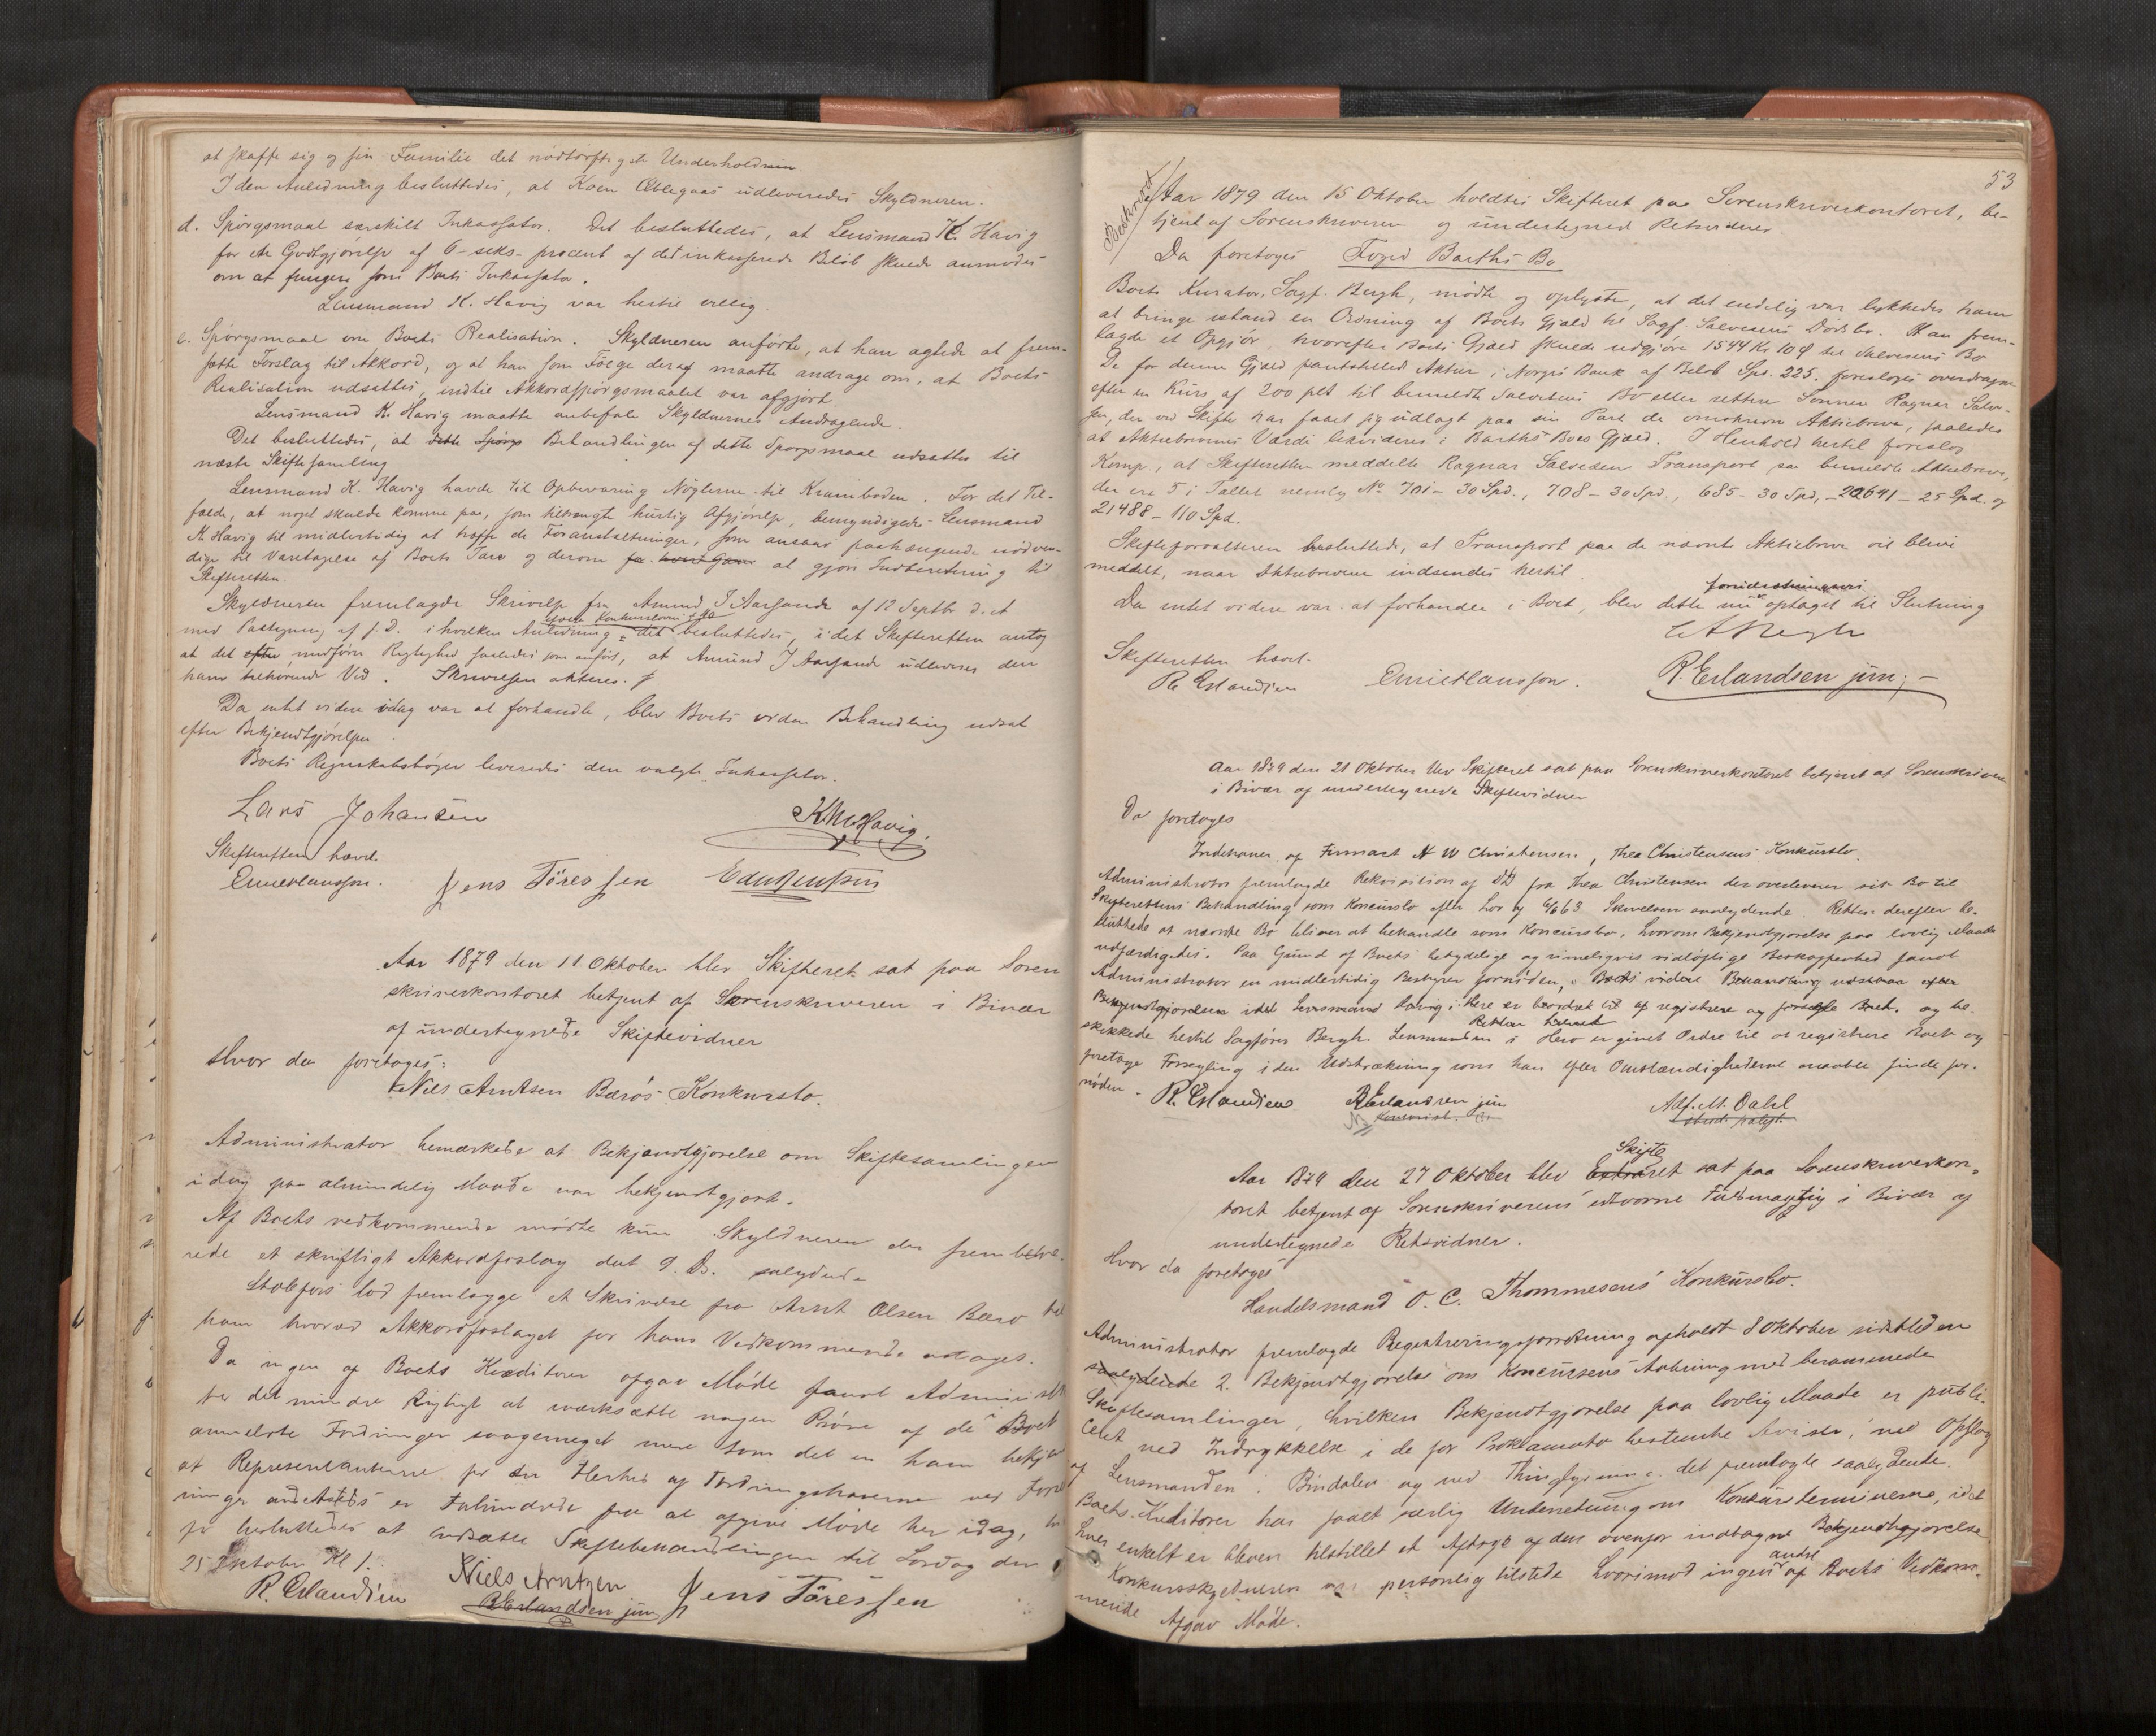 at skaffe sig og sin Familie det nødtørftigste Underhold
I den Anledning besluttedes, at Koen Æblegaas udleveredes Skyldneren.
d. Spørgsmaal særskilt Inkassator. Det besluttedes, at Lensmand K. Havig
for en Godtgjørelse af 6-seks-procent af det inkasserede Beløb skulde anmodes
om at fungere som Boets Inkassator.
Lensmand K. Havig var hertil villig.
e. Spørgsmaal om Boets Realisation. Skyldneren anførte, at han agtede at frem-
sætte Forslag til Akkord, og at han som Følge deraf maatte andrage om, at Boets
Realisation udsattes, indtil Akkordspørgsmaalet var afgjort.
Lensmand K. Havig maatte anbefale Skyldnerens Andragende.
Det besluttedes, at dette Spørgs Behandlingen af dette Spørgsmaal udsattes til
næste Skiftesamling
Lensmand K. Havig havde til Opbevaring Nøglerne til Kramboden. For det Til-
fælde, at noget skulde komme paa, som tiltrængte hurtig Afgjørelse, bemyndigedes Lensmand
K. Havig til midlertidig at træffe de Foranstaltninger, som ansaaes paatrængende nødven-
dige til Varetagelse af Boets Tarv og derom at gjøre Indberetning til
Skifteretten.
Skyldneren fremlagde Skrivelse fra Amund J Aarsande af 12 Septbr d. A
med Paategning af s. D. i hvilken Anledning det besluttedes, idet Skifteretten antog
at det efter medførte Rigtighed saaledes som anført, at Amund J Aarsande udleveres den
ham tilhørende Ved. Skrivelsen akteres.
Da intet videre idag var at forhandle, blev Boets videre Behandling udsat
efter Bekjendtgjørelse.
Boets Regnskabsbøger leveredes den valgte Inkassator.
Lars Johansen
K Havig.
Skifteretten hævet.
Jens Töressen
Aar 1879 den 11 Oktober blev Skifteret sat paa Soren
skriverkontoret betjent af Sorenskriveren i Bivær
af undertegnede Skiftevidner
Hvor da foretoges:
Niels Arntsen Bærøs Konkursbo.
Administrator bemærkede at Bekjendtgjørelse om Skiftesamlingen
idag paa almindelig Maade var bekjendtgjort.
Af Boets vedkommende mødte kun Skyldneren der frembæ-
rede et skriftligt Akkordforslag dat 9. Ds. salydende
lod fremlægge et Skrivelse fra Arnt Olsen Bærø til
ham hvorved Akkordforslaget for hans Vedkommende antages.
Da ingen af Boets Kreditorer afgav Møde fandt Administra
tor det mindre Rigtigt at iværksætte nogen Prøve af de i Boet
anmeldte Fordringer saameget mere som det er ham bekjen
at Repræsentanterne for en Herhed af Fordringshaverne ved Foret
ninger andetsteds er forhindrede fra at afgive Møde her idag, hvor
for besluttedes at udsætte Skiftebehandlingen til Lørdag den
25 Oktober Kl 1.
R. Erlandsen Niels Arntzen Jens Töressen
RErlandsen jun
53
Beskrevet
Aar 1879 den 15 Oktober holdtes Skifteret paa Sorenskriverkontoret, be-
tjent af Sorenskriveren og undertegnede Retsvidner
Da foretoges Foged Barths Bo
Boets Kurator, Sagf. Bergh, mødte og oplyste, at det endelig var lykkedes ham
at bringe istand en Ordning af Boets Gjæld til Sagf. Salvesens Dødsbo. Han frem-
lagde et Opgjør, hvorefter Boets Gjæld skulde udgjøre 1544 Kr 10 Ø til Salvesens Bo
De for denne Gjæld pantsatte Aktier i Norges Bank af Beløb Spd. 225. foresloges overdragne
efter en Kurs af 200 pct til bemeldte Salvesens Bo eller rettere Sønnen Ragnar Salve-
sen, der ved Skifte har faaet sig udlagt paa sin Part de omskrevne Aktiebreve, saaledes
at Aktiebrevenes Værdi likvideres i Barths Boes Gjæld. I Henhold hertil foreslog
Komp., at Skifteretten meddelte Ragnar Salvesen Transport paa bemeldte Aktiebreve,
der ere 5 i Tallet nemlig No 701 - 30 Spd., 708 - 30 Spd., 685 - 30 Spd, - 20691 - 25 Spd. og
21488 - 110 Spd.
Skifteforvalteren besluttede, at Transport paa de nævnte Aktiebreve vil blive
meddelt, naar Aktiebrevene indsendes hertil.
Da intet videre var at forhandle i Boet, blev dette nu optaget til Slutning
CA Bergh
Skifteretten hævet.
R Erlandsen
R. Erlandsen jun. -
Aar 1879 den 21 Oktober blev Skifteret sat paa Sorenskriverkontoret betjent af Sorenskriveren
i Bivær og undertegnede Skiftevidner
Da foretoges
Indehaver af Firmaet N W Christensen, Thea Christensens Konkursbo.
Administrator fremlagde Rekvisition af DD fra Thea Christensen der overleverer sit Bo til
Skifterettens Behandling som Koncursbo efter Lov af 6/6 63. Skrivelsen saalydende. Retten derefter be-
sluttede at nævnte Bo bliver at behandle som Koncursbo, hvorom Bekjendtgjørelse paa lovlig Maade
udfærdigedes. Paa Grund af Boets betydelige og rimeligvis vidløftige Beskaffenhed fandt
Administrator en midlertidig Bestyrer fornøden, Boets videre Behandling udstaar efter
Bekjendtgjørelse idet Lensmand Havig i Herø er beordret til at registrere og forsegle Boet. og be-
skikkede hertil Sagfører Bergh. Lensmanden i Herø er givet Ordre til at registrere Boet og
foretage Forsegling i den Udstrækning som han efter Omstændighederne maatte finde for-
nøden. R. Erlandsen RErlandsen jun Alf. M. Dahl
Skifte
Aar 1879 den 27 Oktober blev Extraret sat paa Sorenskriverkon-
toret betjent af Sorenskriverens edsvorne Fuldmægtig i Bivær og
undertegnede Retsvidner.
Hvor da foretoges
Handelsmand O. C. Thommesens Konkursbo.
Administrator fremlagde Registreringsforretning afholdt 8 Oktober sidstleden
saalydende 2. Bekjendtgjørelse om Koncursens Aabning med berammede
Skiftesamlinger, hvilken Bekjendtgjørelse paa lovlig Maade er publi-
ceret ved Indrykkelse i de for Proklamata bestemte Aviser, ved Opslag
af Lensmanden i Bindalen og ved Thinglysning. det fremlagte saalydende.
Boets Kreditorer har faaet særlig Underretning om Konkursterminerne, idet
hver enkelt er bleven tilstillet et Aftryk af den ovenfor indtagne Bekjendtgjørelse
Konkursskyldneren var personlig tilstede hvorimod ingen andre af Boets Vedkom-
mende Afgav Møde.